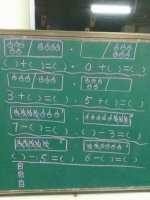 ( )+( )=( ) 0+( )=( )
3+( )=( ) 5+( )=( )
7-( )=( ) ( )-3=( )
( )-5=( ) 6-( )=( )